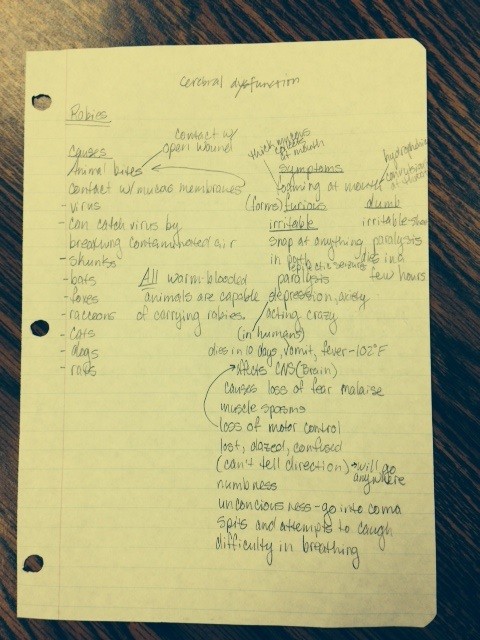 Cerebral dysfunction
Rabies
contact w/
open wound
Causes
Animal bites
Contact w/ mucas membranes
- virus
- can catch virus by
breathing contaminated air
- skunks
- bats
- foxes
- raccoons
- cats
- dogs
- rats
All warm-blooded
animals are capable
of carrying rabies.
thick mucous
at mouth
hydrophobia
symptoms
foaming at mouth
(forms) furious dumb
irritable irritable-short
snap at anything paralysis
in path dies in a
epileptic seizures few hours
paralysis
depression, axiety
acting crazy
(in humans)
dies in 10 days, vomit, fever-102°F
affects CNS (Brain)
causes loss of fear malaise
muscle spasms
loss of motor control
lost, dazed, confused
(can't tell direction) → will go
anywhere
numbness
unconcious ness - go into coma
spits and attempts to caugh
difficulty in breathing